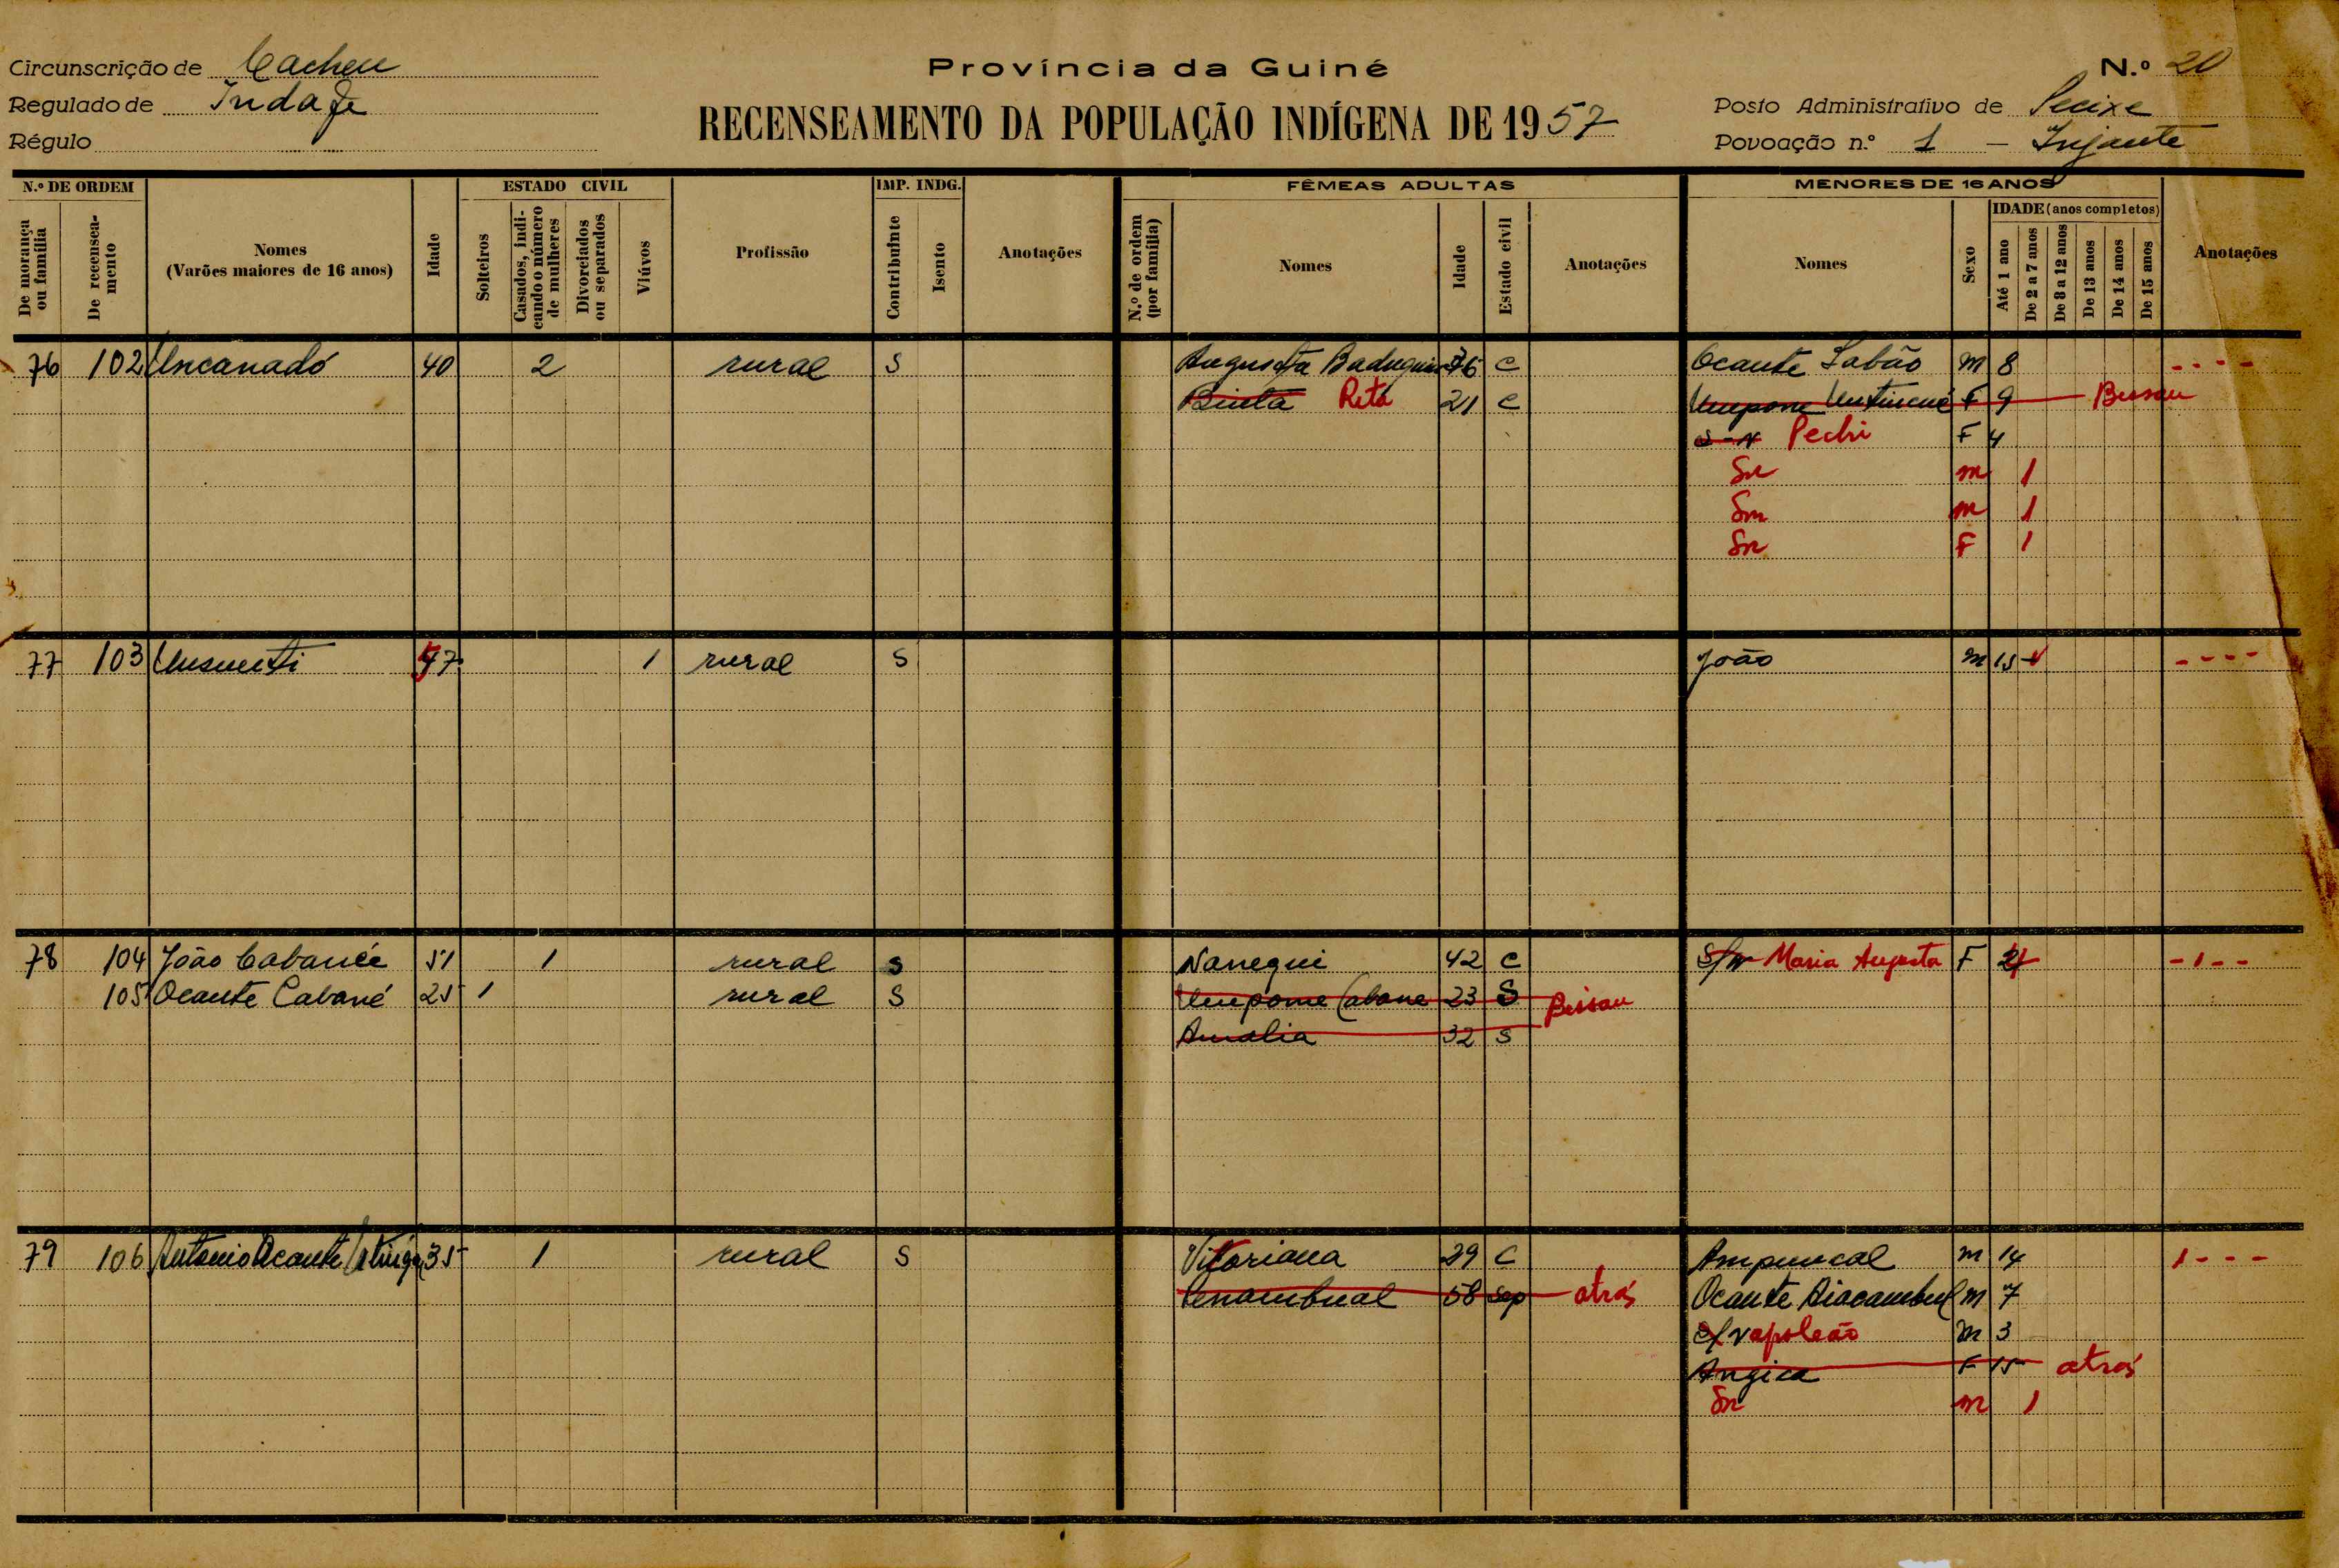 Circunscrição de Cacheu
Província da Guiné
N.º 20
Regulado de Indafe
RECENSEAMENTO DA POPULAÇÃO INDÍGENA DE 1957
Posto Administrativo de Pecixe
Régulo
Povoação n.º 1 - Injante
N.º DE ORDEM
De morança ou família
De recenseamento
Nomes
(Varões maiores de 16 anos)
Idade
ESTADO CIVIL
Solteiros
Casados, indicando o número de mulheres
Divorciados ou separados
Viúvos
Profissão
IMP. INDG.
Contribuinte
Isento
Anotações
FÊMEAS ADULTAS
N.º de ordem (por família)
Nomes
Idade
Estado civil
Anotações
MENORES DE 16 ANOS
Nomes
Sexo
IDADE (anos completos)
Até 1 ano
De 2 a 7 anos
De 8 a 12 anos
De 13 anos
De 14 anos
De 15 anos
Anotações
76 102 Uncanadó 40 2 rural S Augusta C Ocante Sabão M 8 - - - -
Binta Reta 21 C Umpone F 9 Bissau
S-N Pechi F 4
Sn m 1
Sn m 1
Sn F 1
77 103 47 1 rural S João M 15 - - - -
78 104 João Cabané 51 1 rural S Nanegui 42 C S/N Maria Augusta F - 1 - -
105 Ocante Cabané 25 1 rural S Umpone Cabane 23 S Bissau
Amalia 32 S
79 106 Antonio Ocante 35 1 rural S Vitoriana 29 C Ampuncal M 14 1 - - -
58 Sep atrás Ocante M 7
Napoleão M 3
Angica F 15 atrás
Sn m 1